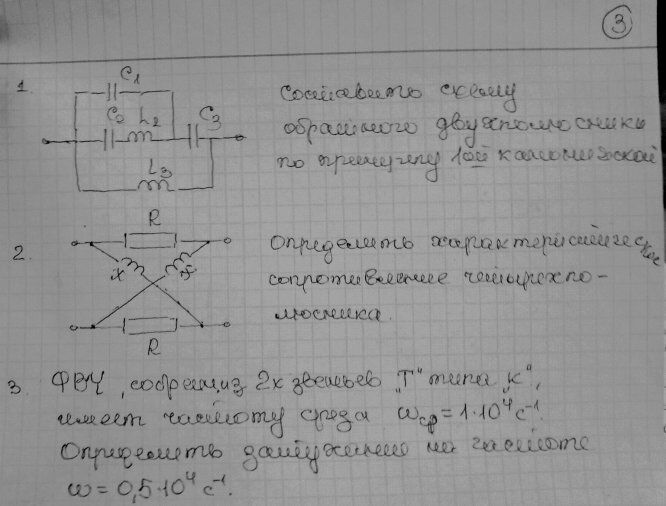 3
1.
C1
C2 L2 C3
L3
Составить схему
обратного двухполюсника
по принципу 1ой канонической
2.
R
x x
R
Определить характеристическое
сопротивление четырехпо-
люсника.
3 ФВЧ, собран из 2х звеньев "Т" типа "к",
имеет частоту среза ωср=1·10⁴ с⁻¹.
Определить затухание на частоте
ω=0,5·10⁴ с⁻¹.